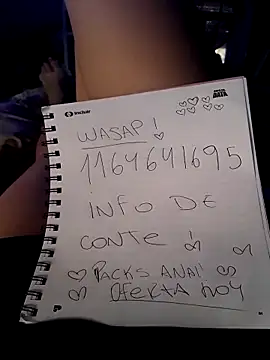 WASAP!
1164641695
INFO DE
CONTE!
PACKS ANAl!
OFERTA HOY